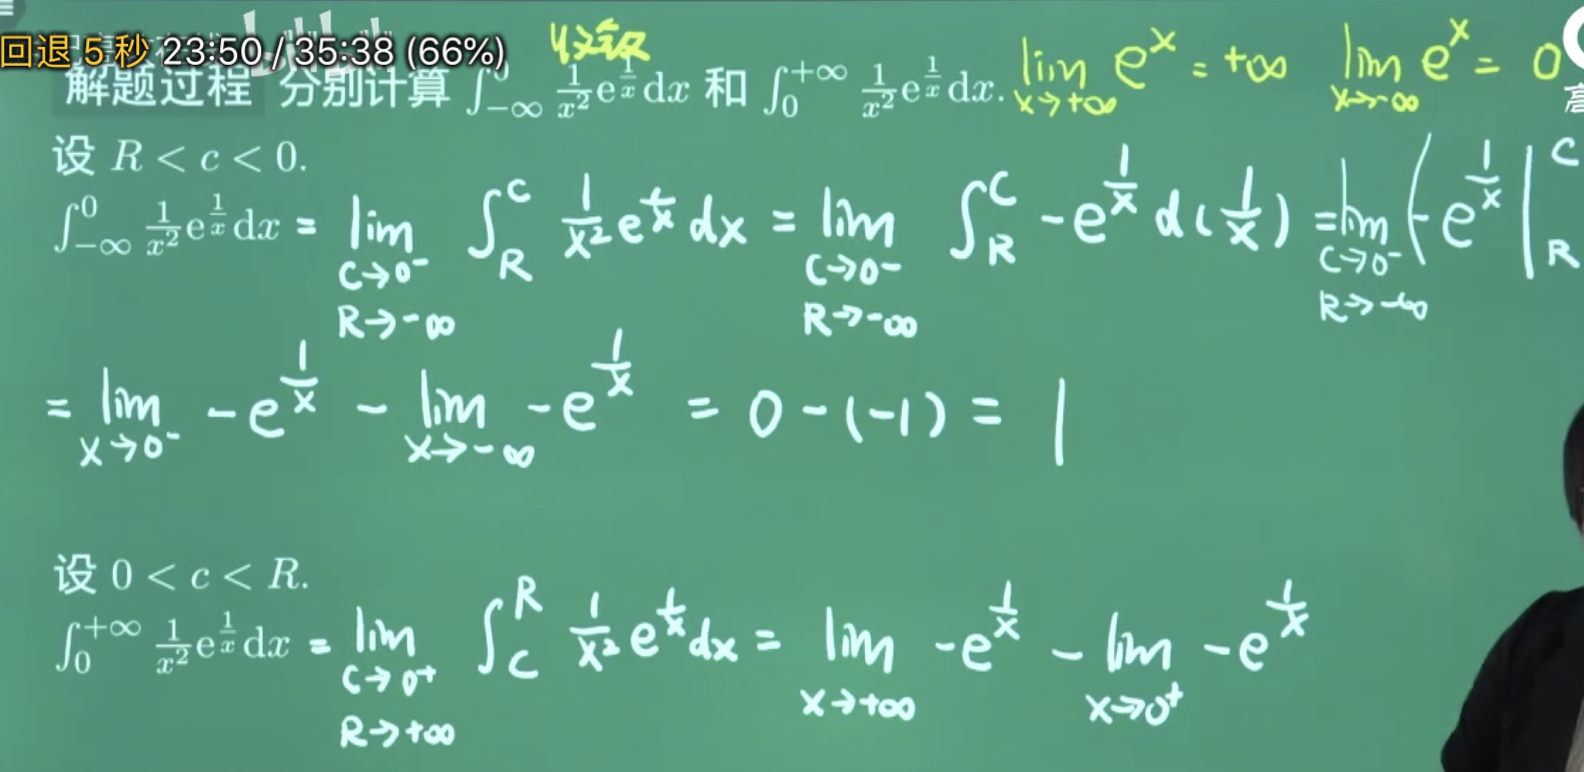 回退 5 秒 23:50 / 35:38 (66%)
收敛
解题过程 分别计算 ∫_{-∞}^{0} 1/x² e^{1/x} dx 和 ∫_{0}^{+∞} 1/x² e^{1/x} dx. lim_{x→+∞} e^x = +∞ lim_{x→-∞} e^x = 0
高
设 R < c < 0.
∫_{-∞}^{0} 1/x² e^{1/x} dx = lim_{C→0⁻ R→-∞} ∫_R^C 1/x² e^{1/x} dx = lim_{C→0⁻ R→-∞} ∫_R^C -e^{1/x} d(1/x) = lim_{C→0⁻ R→-∞} (-e^{1/x} |_R^C
= lim_{x→0⁻} -e^{1/x} - lim_{x→-∞} -e^{1/x} = 0-(-1) = 1
设 0 < c < R.
∫_{0}^{+∞} 1/x² e^{1/x} dx = lim_{C→0⁺ R→+∞} ∫_C^R 1/x² e^{1/x} dx = lim_{x→+∞} -e^{1/x} - lim_{x→0⁺} -e^{1/x}